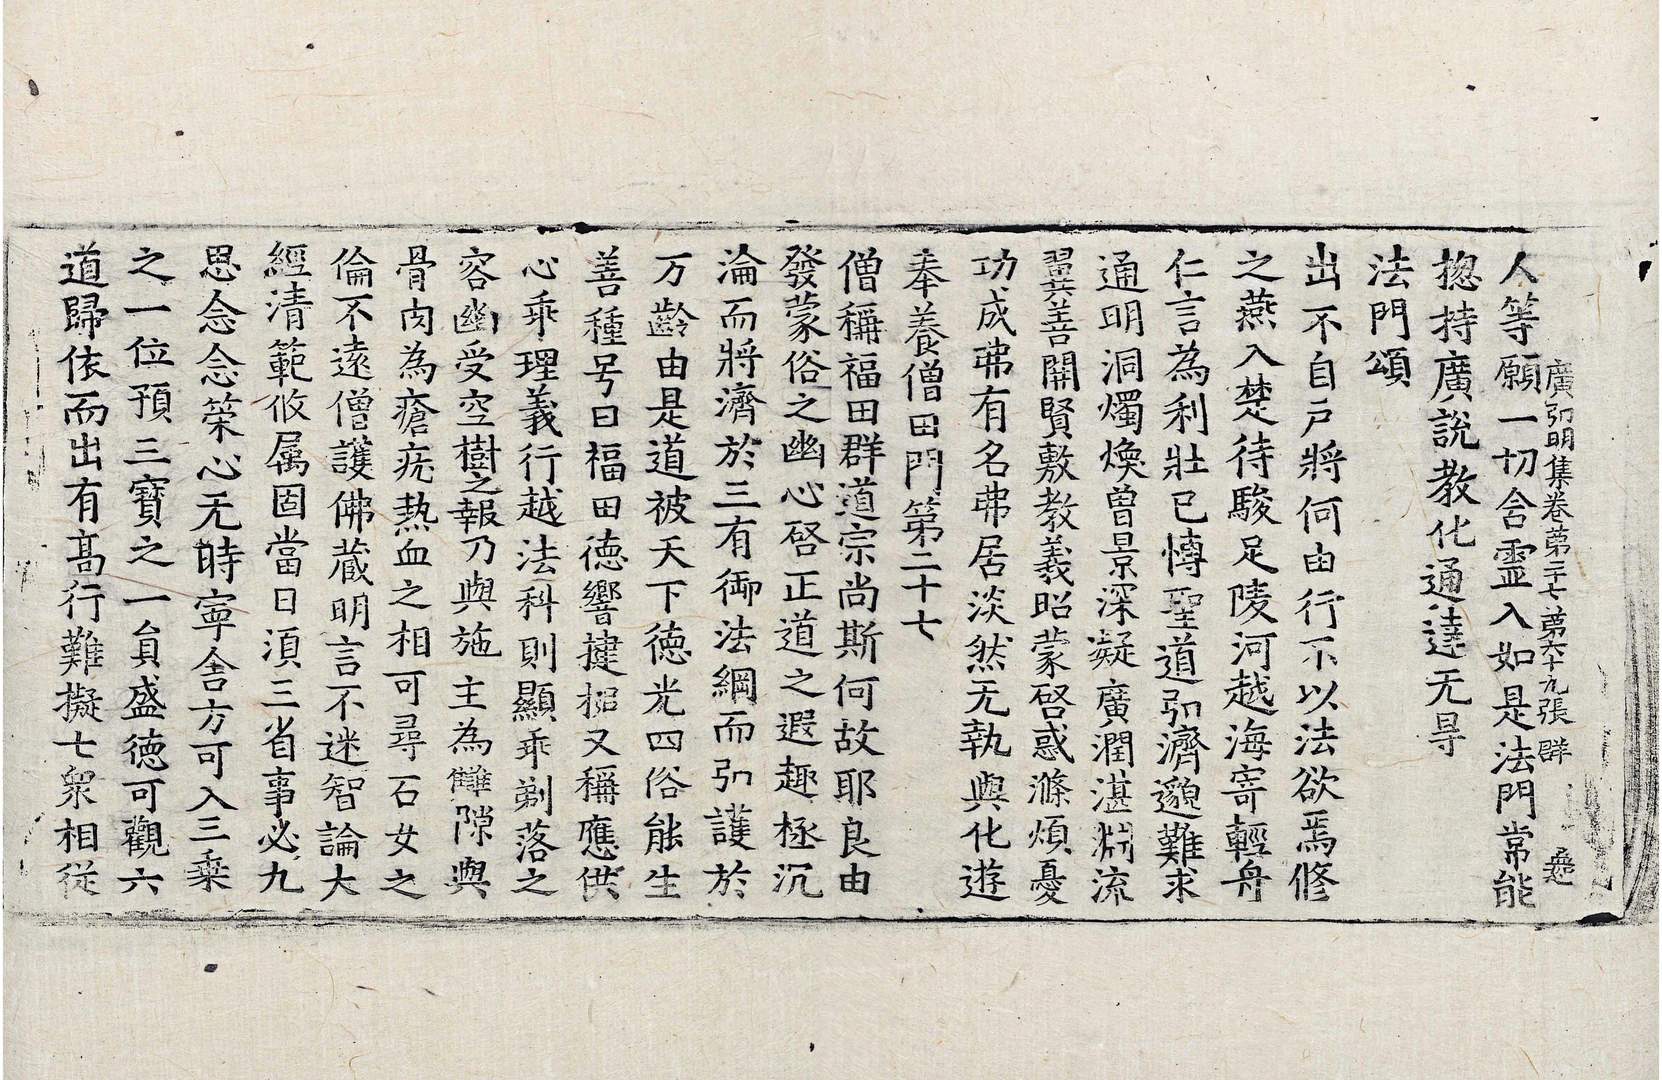 廣弘明集卷第二十七 第六十九張 群
人等願一切含靈入如是法門常能
揔持廣說教化通達无㝵
法門頌
出不自戶將何由行不以法欲焉修
之燕入楚待駿足陵河越海寄輕舟
仁言為利壯已愽聖道弘濟邈難求
通明洞燭煥曽景深凝廣潤湛淵流
翼善開賢敷教義昭蒙啓惑滌煩憂
功成弗有名弗居淡然无執與化遊
奉養僧田門第二十七
僧稱福田群道宗尚斯何故耶良由
發蒙俗之幽心啓正道之遐趣拯沉
淪而將濟於三有御法綱而弘護於
万齡由是道被天下德光四俗能生
善種号曰福田德響捷招又稱應供
心乖理義行越法科則顯乖剃落之
容幽受空樹之報乃與施主為讎隙與
骨肉為瘡疣熱血之相可尋石女之
倫不遠僧護佛蔵明言不迷智論大
經清範攸属固當日湏三省事必九
思念念策心无時寧舍方可入三乗
之一位預三寶之一負盛德可觀六
道歸依而出有髙行難擬七衆相從